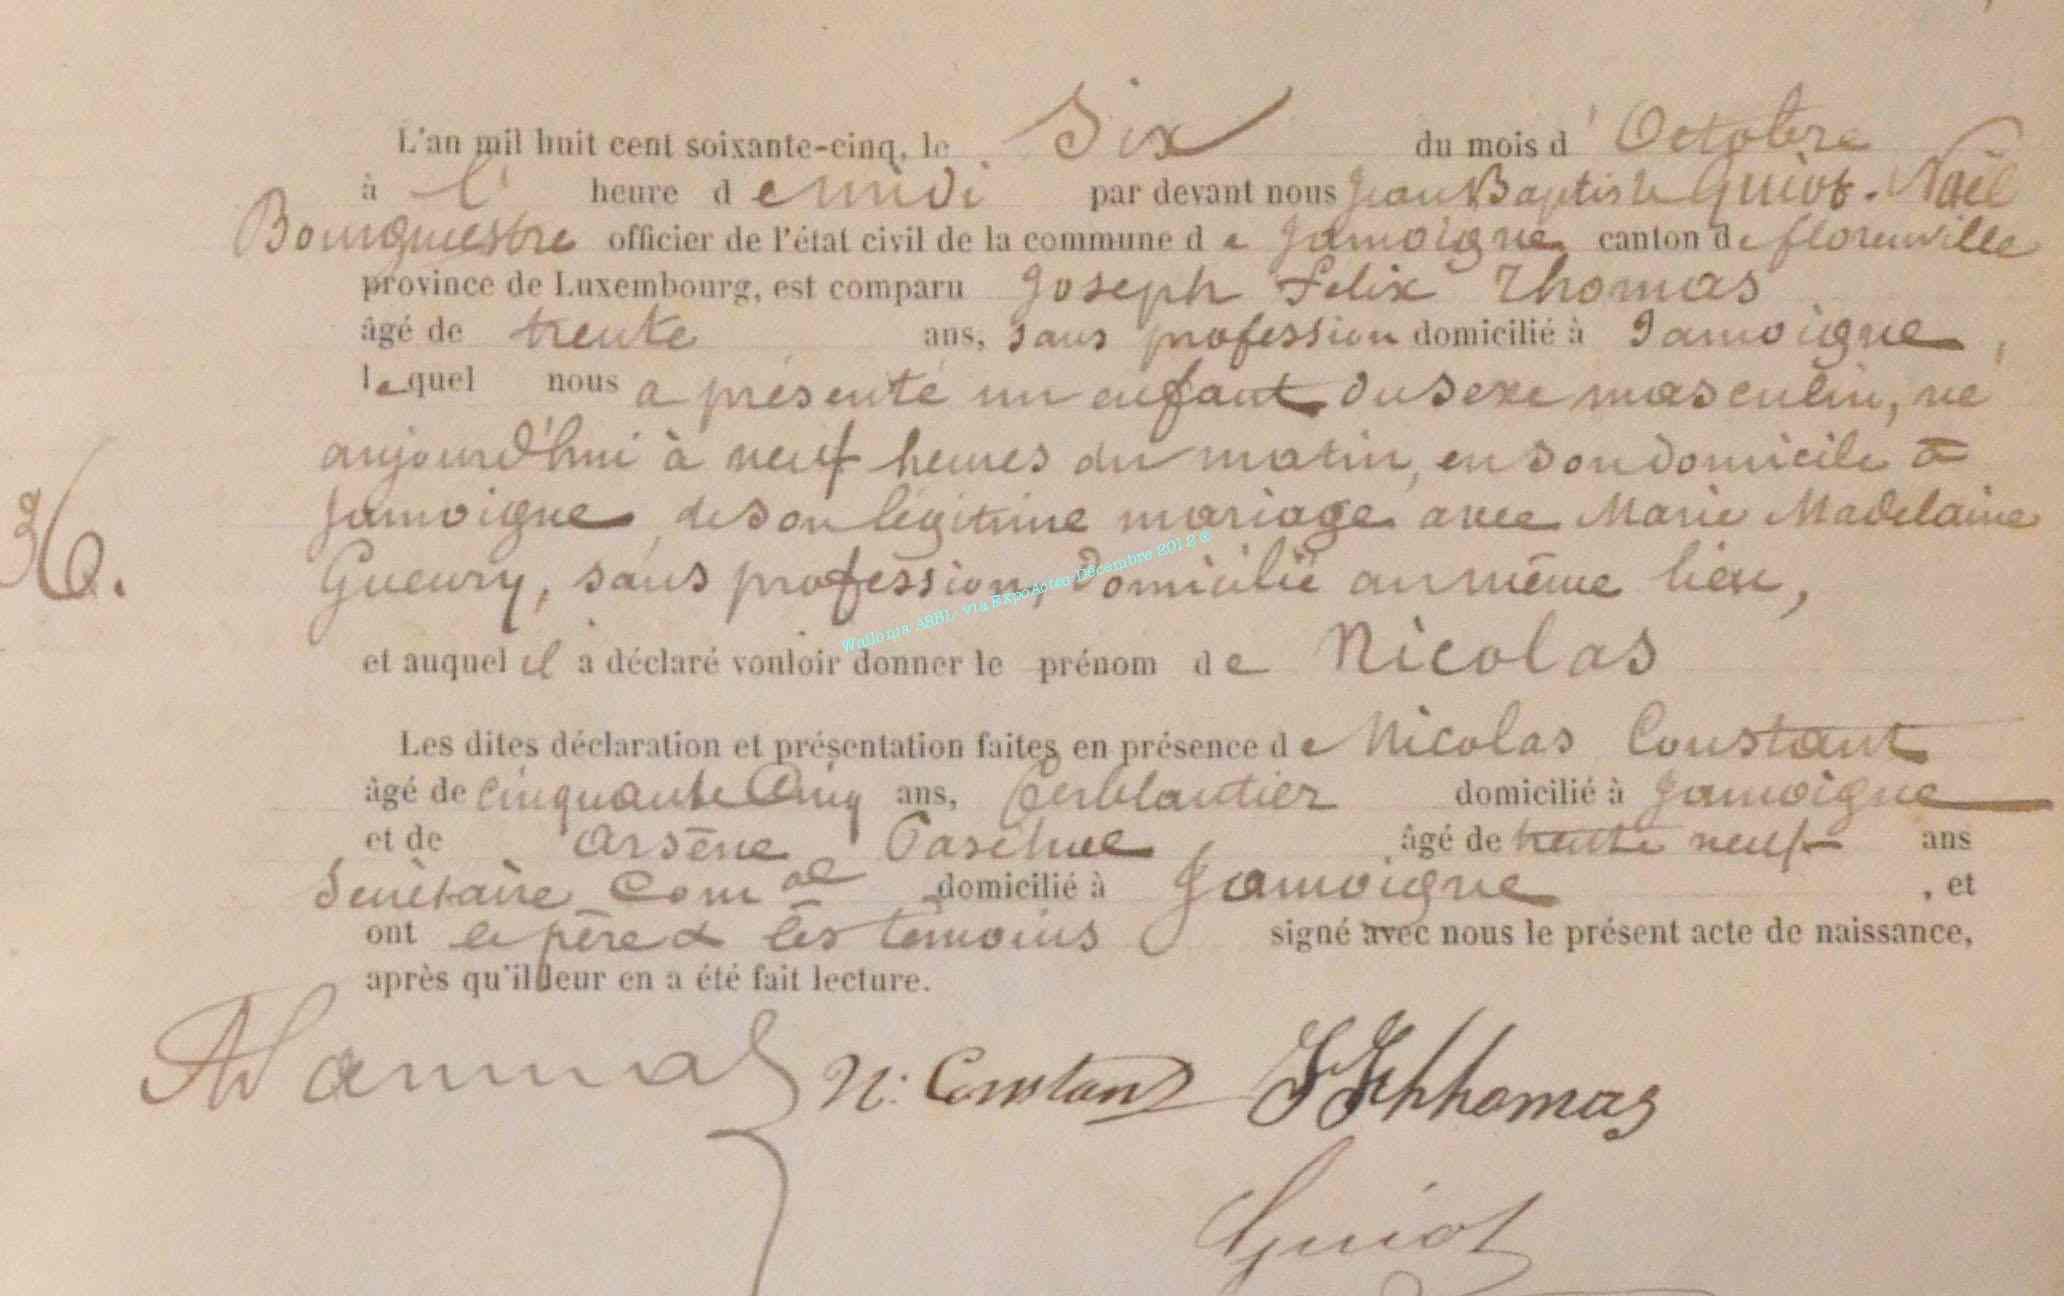 L'an mil huit cent soixante-cinq, le Six du mois d'Octobre
à l' heure de midi par devant nous Jean Baptiste Guiot-Noël
Bourgmestre officier de l'état civil de la commune de Jamoigne canton de florenville
province de Luxembourg, est comparu Joseph Felix Thomas
âgé de trente ans, sans profession domicilié à Jamoigne,
lequel nous a présenté un enfant du sexe masculin, né
aujourd'hui à neuf heures du matin, en son domicile à
Jamoigne, de son légitime mariage avec Marie Madelaine
36.
Gueury, sans profession, domicilié au même lieu,
Wallonia ASBL via ExpoActes Décembre 2012 ©
et auquel il a déclaré vouloir donner le prénom de Nicolas
Les dites déclaration et présentation faites en présence de Nicolas Constant
âgé de cinquante Cinq ans, ferblantier domicilié à Jamoigne
et de Arsène âgé de trente neuf ans
Secrétaire Com al domicilié à Jamoigne, et
ont le père & les témoins signé avec nous le présent acte de naissance,
après qu'il leur en a été fait lecture.
N. Constant JF Thomas
Guiot